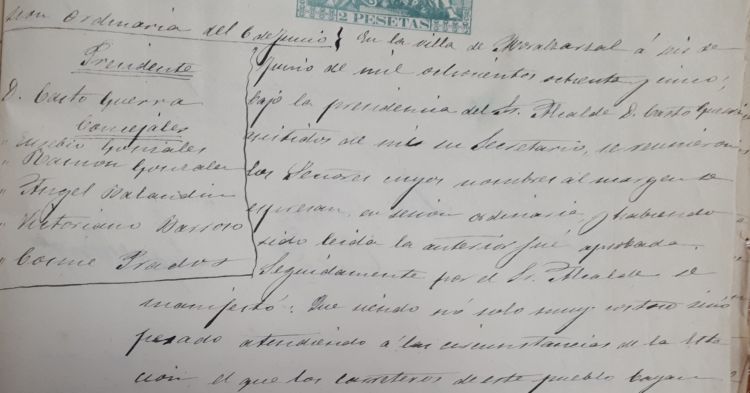 2 PESETAS
sion Ordinaria del 6 de Junio
Presidente
D. Casto Guerra
Concejales
Eusebio Gonzales
" Ramon Gonzales
" Angel Balandin
" Victoriano Barroso
" Cosme Prados
En la villa de Moralzarzal á seis de
Junio de mil ochocientos ochenta y cinco;
bajo la presidencia del Sr. Alcalde D. Casto Guerra
asistidos de mi su Secretario, se reunieron
los Señores cuyos nombres al margen se
espresan, en sesion ordinaria y habiendo
sido leida la anterior fué aprobada.
Seguidamente por el Sr. Alcalde se
manifestó: Que siendo nó solo muy costoso sinó
pesado atendiendo á las circunstancias de la Esta
cion el que los carreteros de este pueblo bajan